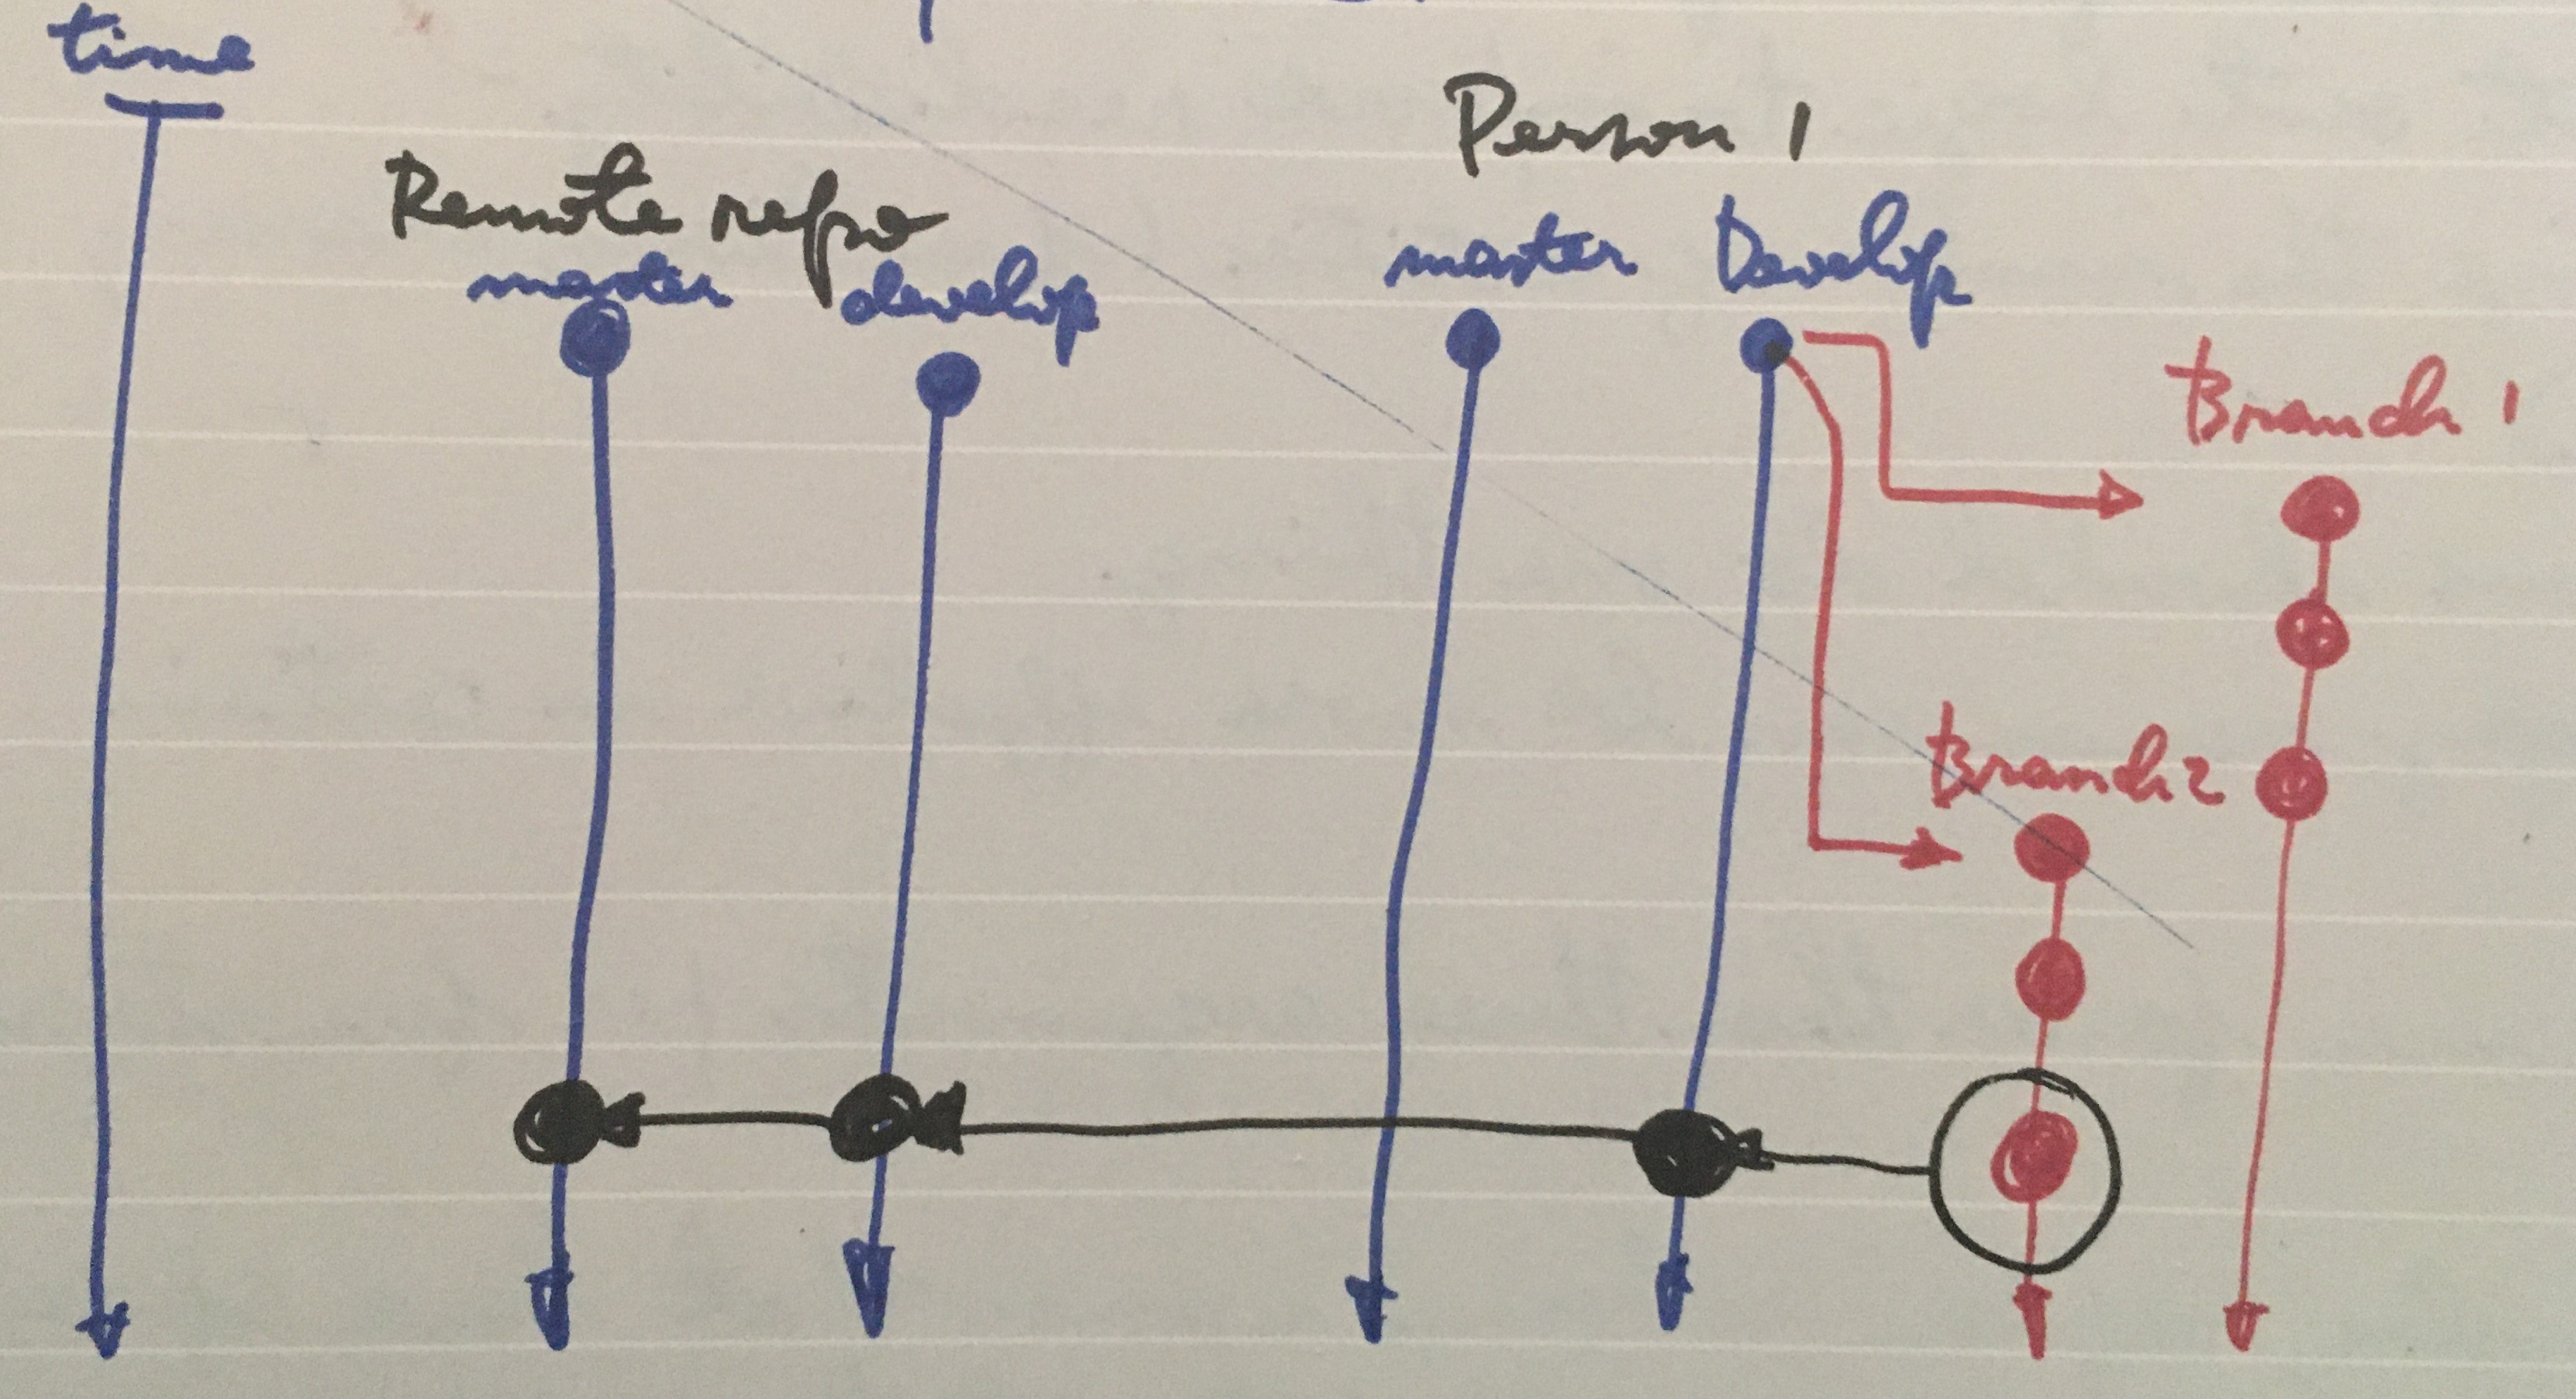 time
Person 1
Remote repo
master Develop
master develop
Branch 1
Branch 2